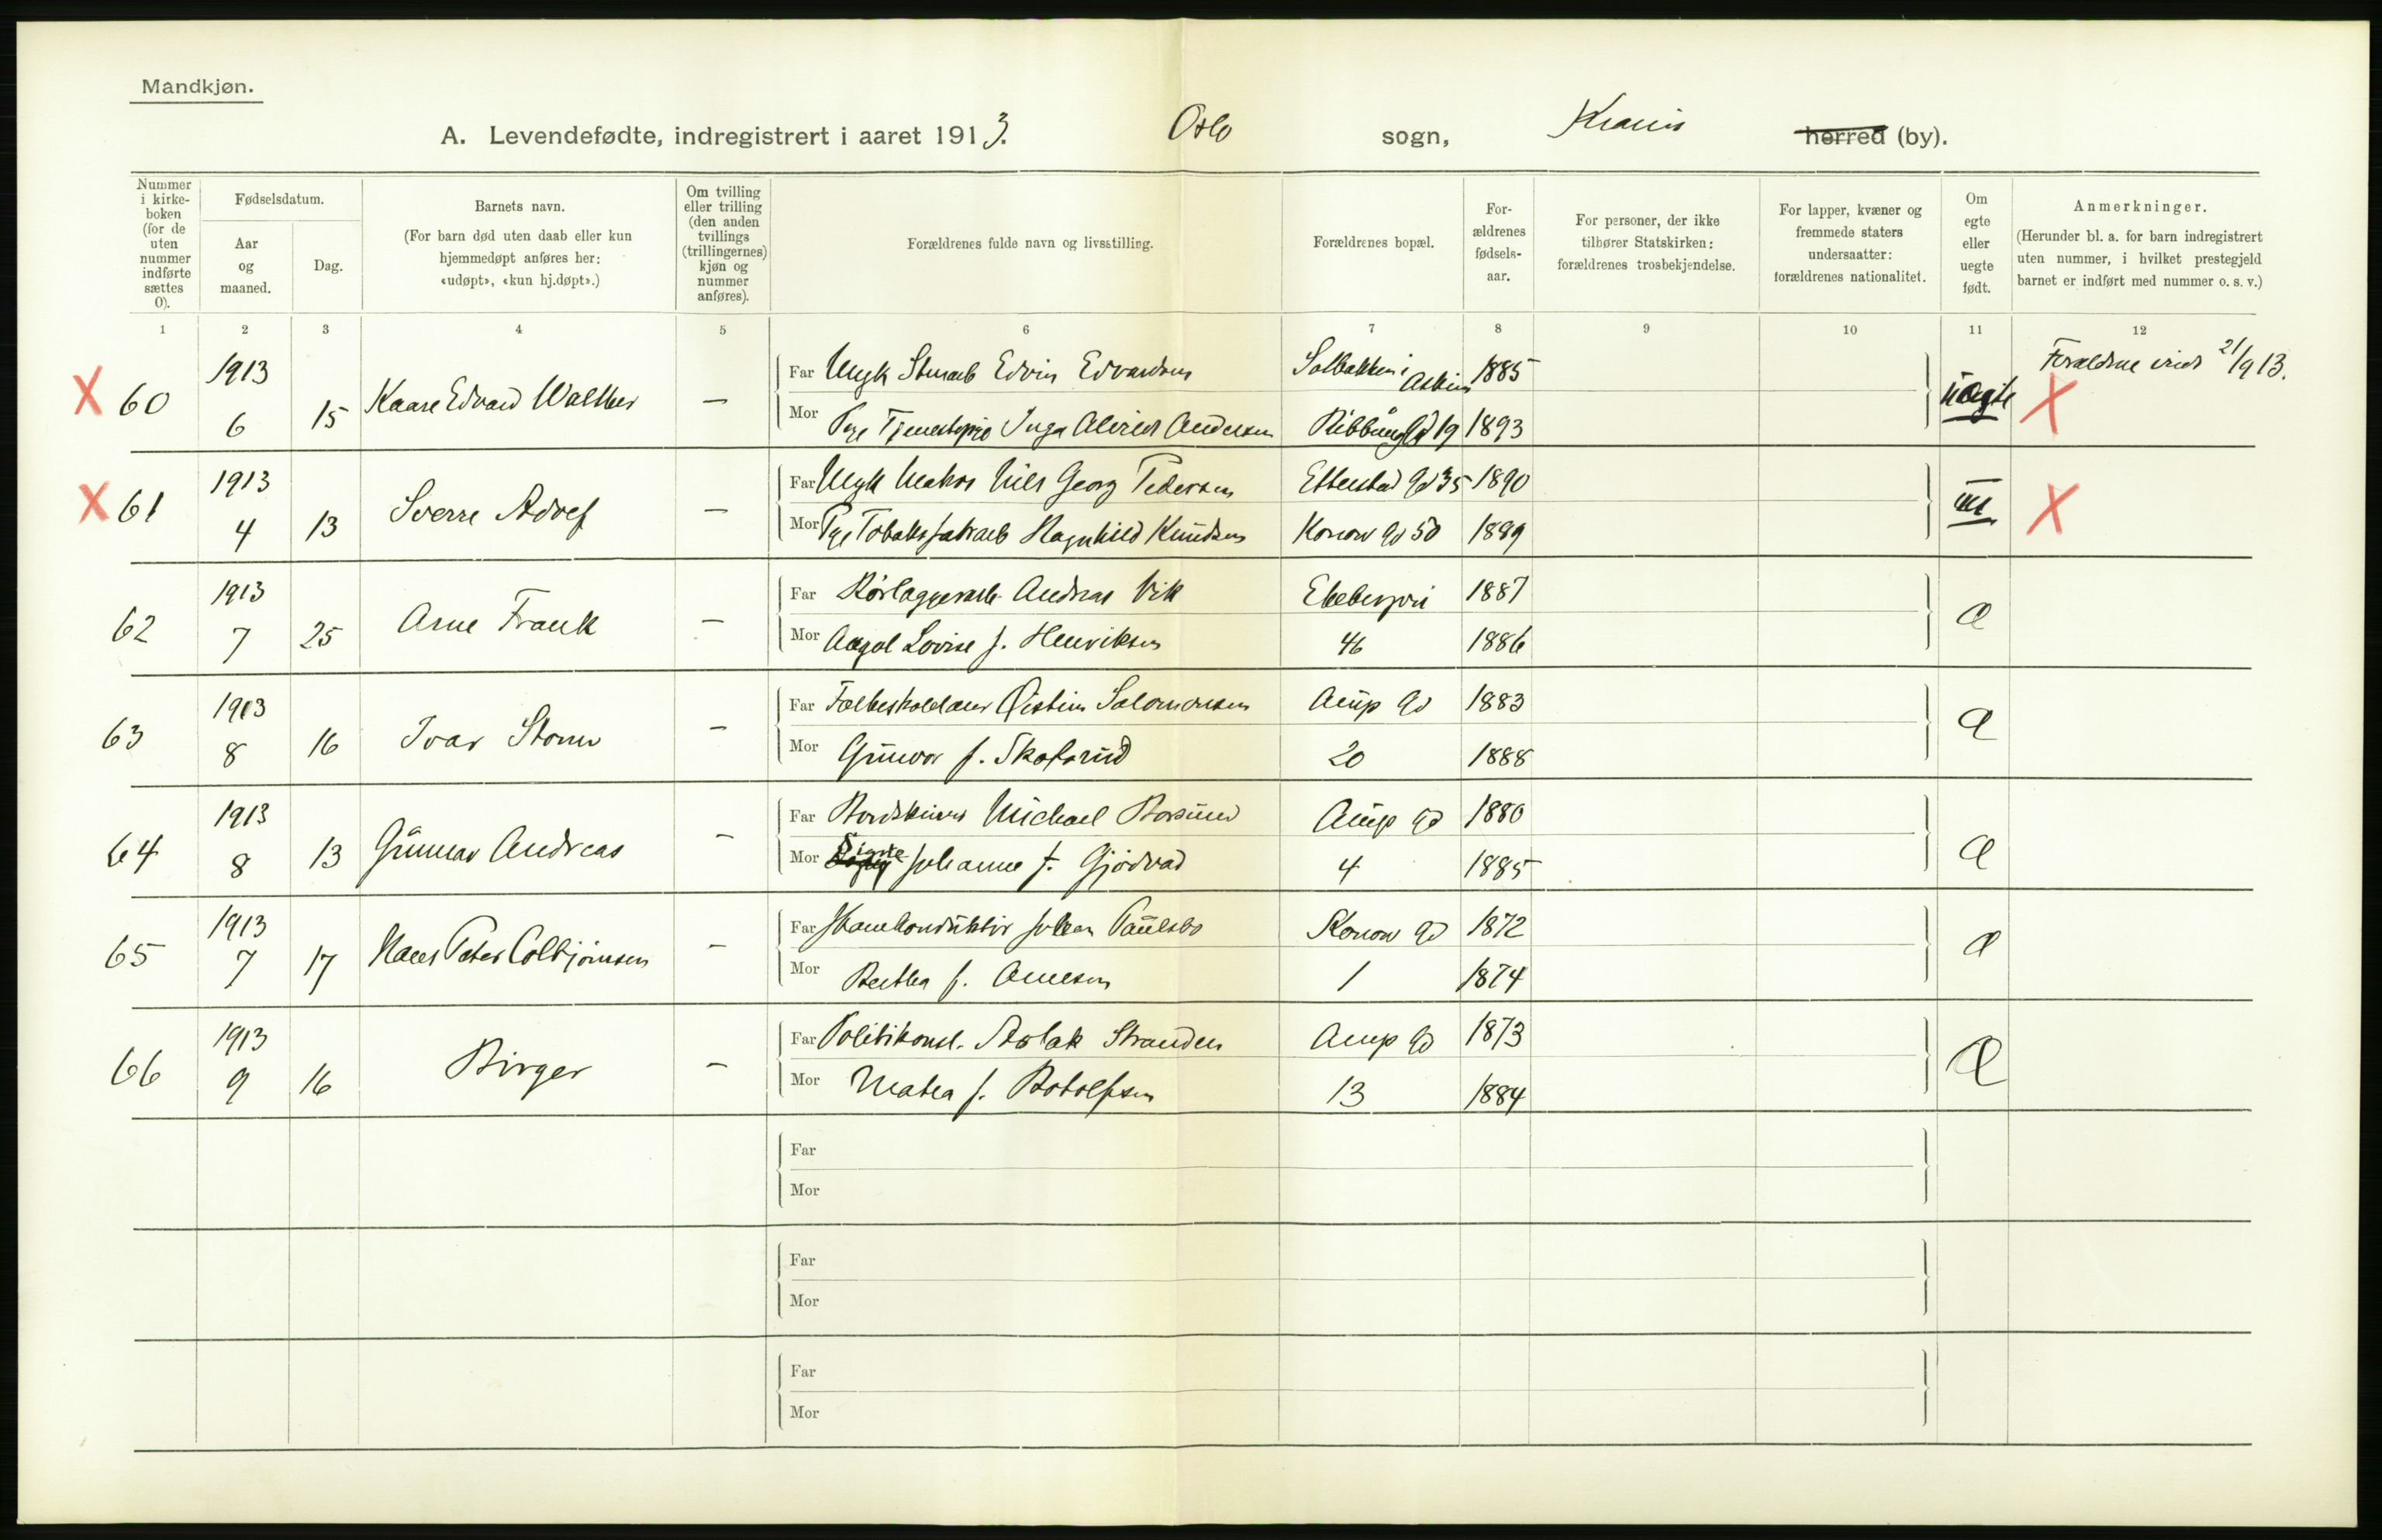 Mandkjøn.
A. Levendefødte, indregistrert i aaret 1913. Oslo sogn, Krania herred (by).
Nummer i kirkeboken (for de uten nummer indførte sættes 0).
Fødselsdatum.
Aar og maaned.
Dag.
Barnets navn.
(For barn død uten daab eller kun hjemmedøpt anføres her: «udøpt», «kun hj.døpt».)
Om tvilling eller trilling (den anden tvillings (trillingernes) kjøn og nummer anføres).
Forældrenes fulde navn og livsstilling.
Forældrenes bopæl.
Forældrenes fødselsaar.
For personer, der ikke tilhører Statskirken: forældrenes trosbekjendelse.
For lapper, kvæner og fremmede staters undersaatter: forældrenes nationalitet.
Om egte eller uegte født.
Anmerkninger.
(Herunder bl. a. for barn indregistrert uten nummer, i hvilket prestegjeld barnet er indført med nummer o. s. v.)
1 2 3 4 5 6 7 8 9 10 11 12
X 60 1913 6 15 Kaare Edvard Walther —
Far Ungk Edvin Edvardsen Solbakken i Askim 1885
Mor Pge Inga Andersen Ribbungd 19 1893
uægte X 21/9 13.
X 61 1913 4 13 Sverre Adolf —
Far Ungk Matros Nils Georg Pedersen Etterstad Gd 35 1890
Mor Pge Tobaksfabrarb Ragnhild Knudsen Konow Gd 50 1889
X
62 1913 7 25 Arne Frank —
Far Rørlæggerarb Andreas Vik Ekebergvei 1887
Mor Aagot Lovise f. Henriksen 46 1886
Æ
63 1913 8 16 Ivar Storm —
Far Øistein Salomonsen Aaup Gd 1883
Mor Gunvor f. Skaforud 20 1888
Æ
64 1913 8 13 Gunnar Andreas —
Far Michael Aaup Gd 1880
Mor Signe Johanne f. Gjødvad 4 1885
Æ
65 1913 7 17 Hans Peter Colbjørnsen —
Far Johan Paulsbo Konow Gd 1872
Mor Berthea f. Arnesen 1 1874
Æ
66 1913 9 16 Birger —
Far Politikonst. Aslak Stranden Aaup Gd 1873
Mor Mathea f. Botolfsen 13 1884
Æ
Far
Mor
Far
Mor
Far
Mor